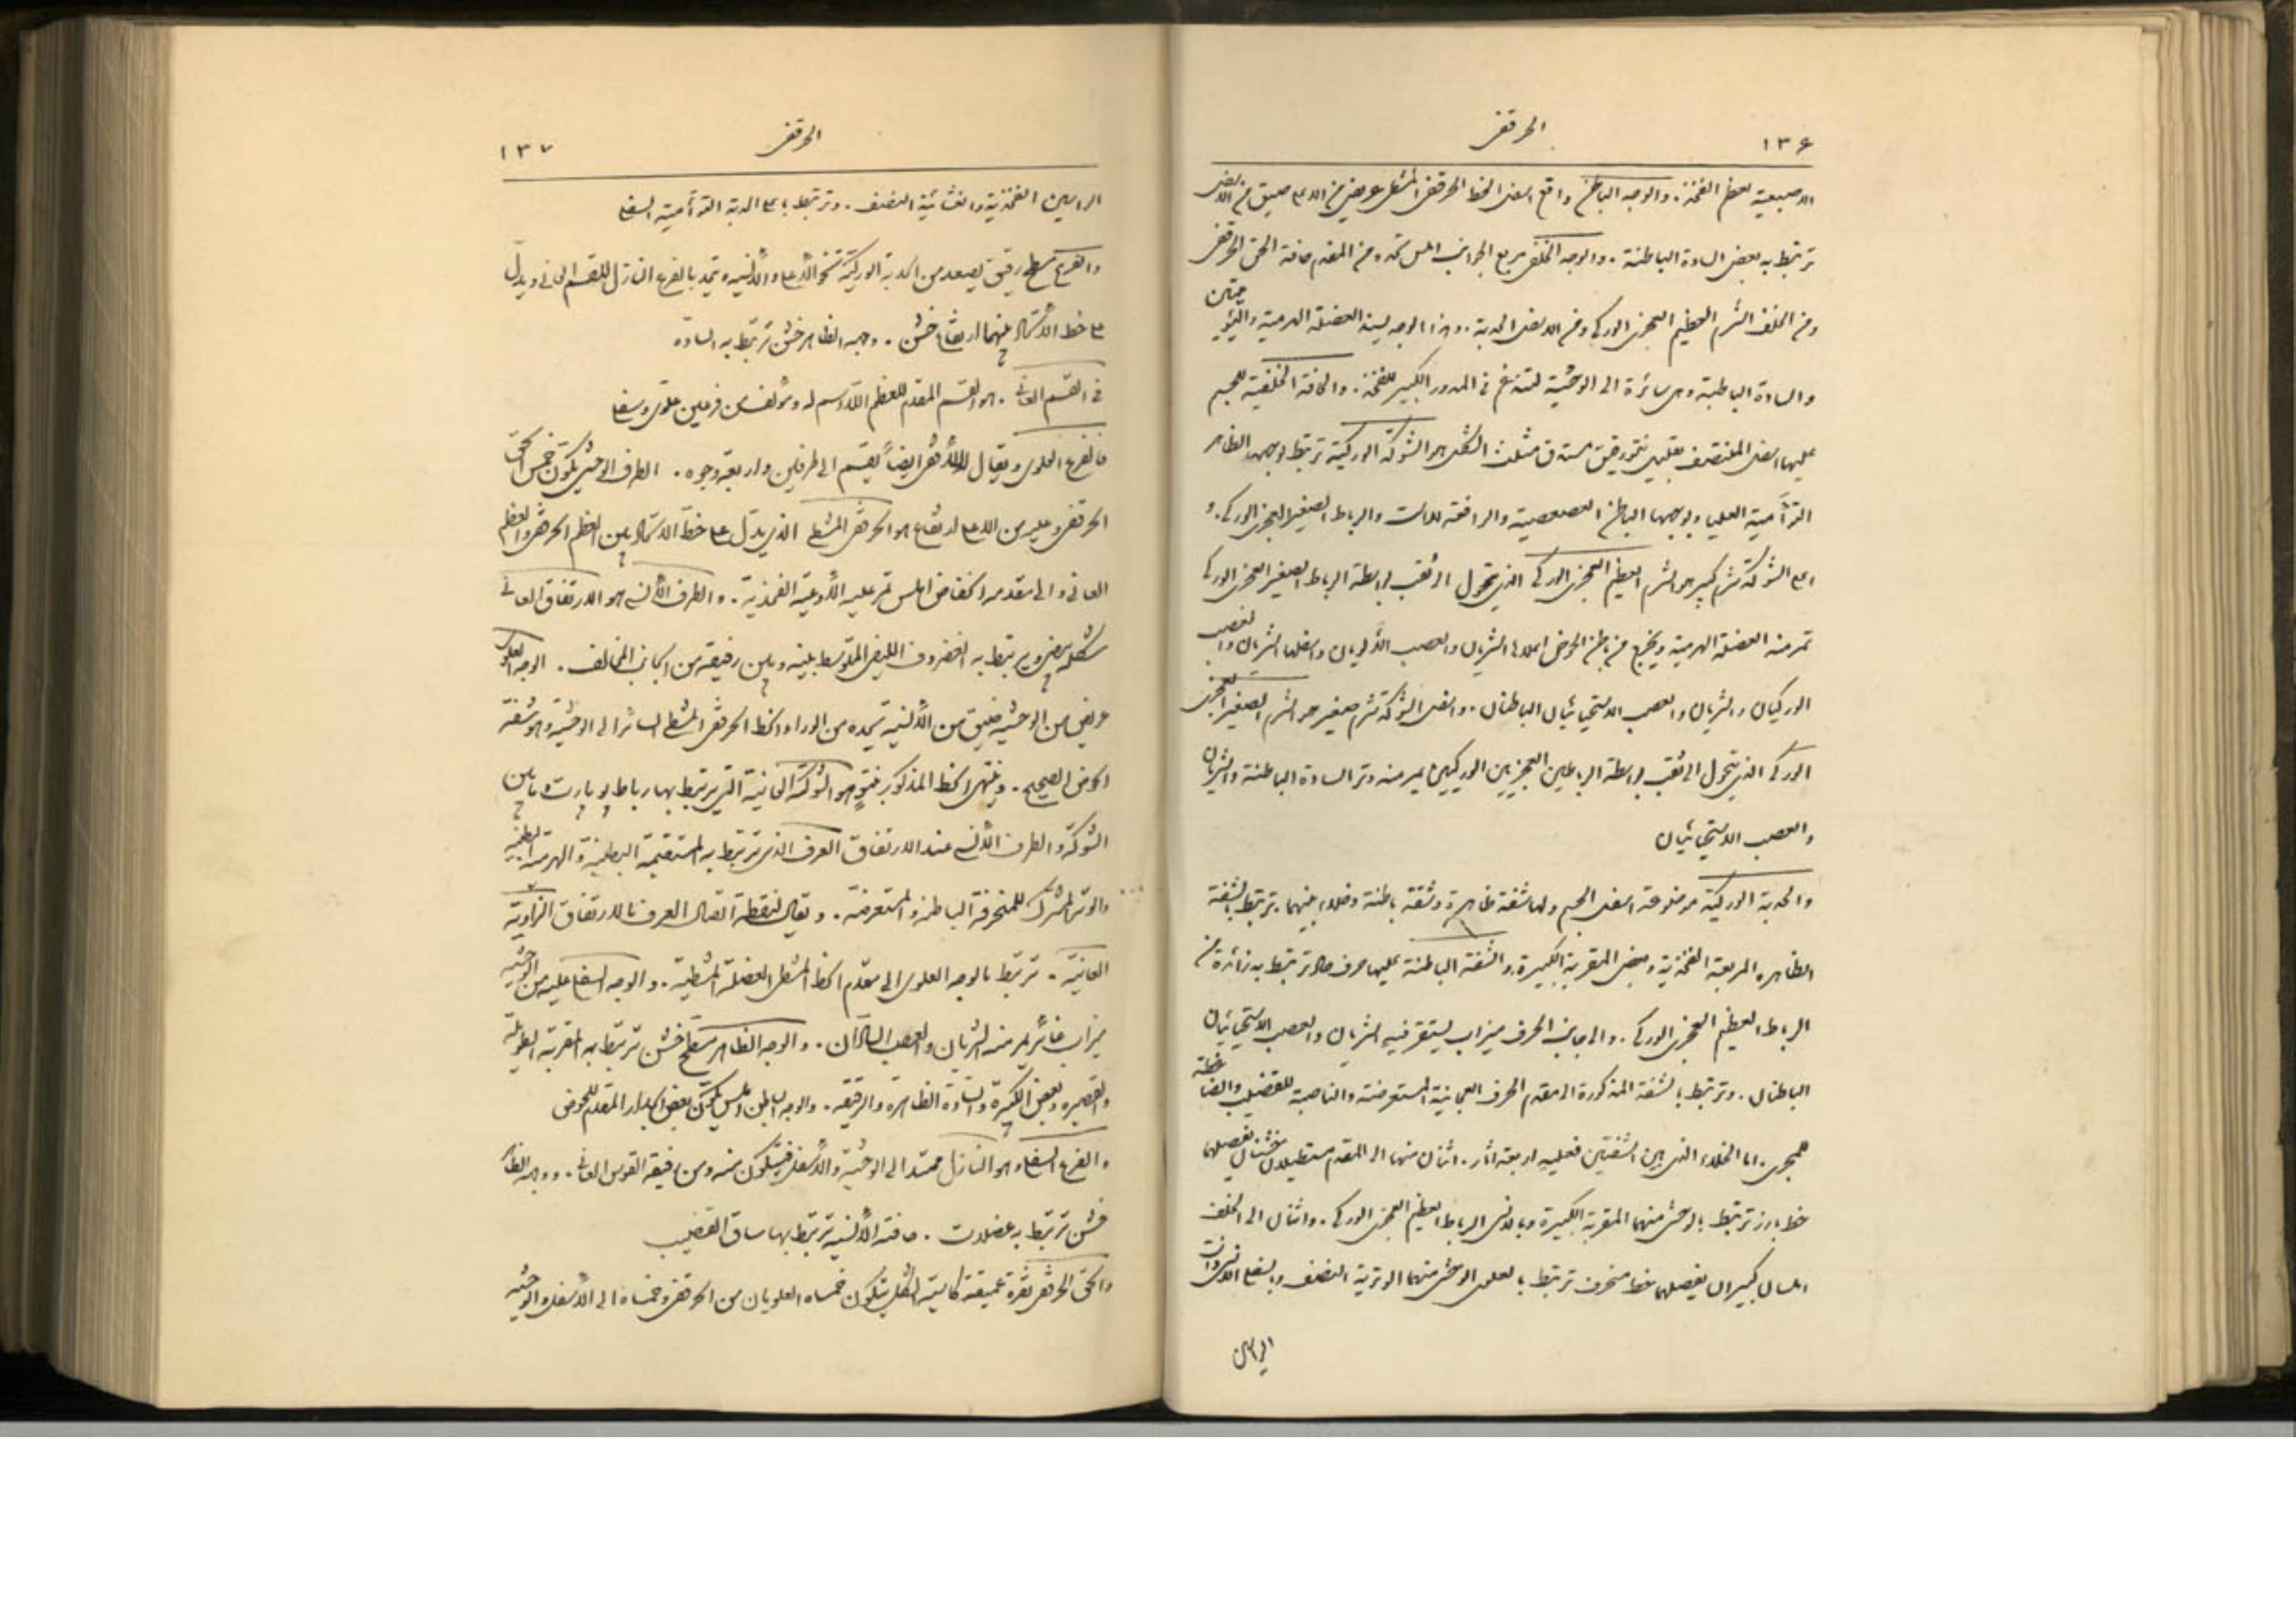 ١٣۶
الحرقفي
الاربيعية لعظم الفخذ. والوجه الباطن واقع اسفل الخط الحرقفي المشطي عريض من الاعلى ضيق من الاسفل
ترتبط به بعض السادة الباطنة. والوجه الخلفي مربع الجوانب املس تحده من المقدم حافة الحق الحرقفي
ومن الخلف الشرم العظيم العجزي الوركي ومن الاسفل الحدبة. وهذا الوجه لسير العضلة الهرمية والتوأميتين
والسادة الباطنة وهي سائرة الى الوحشية لتندغم في المدور الكبير للفخذ. والحافة الخلفية للجسم
عليها اسفل المنتصف بقليل نتو رقيق مستدق مثلث الشكل هو الشوكة الوركية ترتبط بوجهها الظاهر
التوأمية العليا وبوجهها الباطن العصعصية والرافعة للاست والرباط الصغير العجزي الوركي. و
اعلى الشوكة شرم كبير هو الشرم العظيم العجزي الوركي الذي يتحول الى ثقب بواسطة الرباط الصغير العجزي الوركي
تمر منه العضلة الهرمية ويخرج من باطن الحوض اعلاها الشريان والعصب الأليويان واسفلها الشريان والعصب
الوركيان والشريان والعصب الاستحيائيان الباطنان. واسفل الشوكة شرم صغير هو الشرم الصغير العجزي
الوركي الذي يتحول الى ثقب بواسطة الرباطين العجزيين الوركيين يمر منه وتر السادة الباطنة والشريان
والعصب الاستحيائيان
والحدبة الوركية موضوعة اسفل الجسم ولها شفة ظاهرة وشفة باطنة وخلاء بينهما. ترتبط بالشفة
الظاهره المربعة الفخذية وبعض المقربة الكبيرة والشفة الباطنة عليها حرف حاد ترتبط به زائدة من
الرباط العظيم العجزي الوركي. والى جانب الحرف ميزاب يستقر فيه الشريان والعصب الاستحيائيان
الباطنان. وترتبط بالشفة المذكورة الى مقدم الحرف العجانية المستعرضة والناصبة للقضيب والضاغطة
للمجرى. اما الخلاء الذي بين الشفتين فعليه اربعة اثار. اثنان منها الى المقدم مستطيلان خشنان يفصلهما
خط بارز ترتبط بالوحشي منهما المقربة الكبيرة وبالانسي الرباط العظيم العجزي الوركي. واثنان الى الخلف
املسان كبيران يفصلهما خط منحرف ترتبط بالعلوي الوحشي منهما الوترية النصف وبالسفلي الانسي ذات
الراسين
الحرقفي
١٣٧
الراسين الفخذية والغشائية النصف. وترتبط باعلى الحدبة التوأمية السفلى
والفرع سطح رقيق يصعد من الحدبة الوركية نحو الأعلى والأنسية ويتحد بالفرع النازل للقسم العاني ويدل
على خط الأتحاد بينهما ارتفاع خشن. وجهه الظاهر خشن ترتبط به السادة
في القسم العاني. هو القسم المقدم للعظم اللااسم له ومؤلف من فرعين علوي وسفلي
فالفرع العلوي ويقال له الأفقي ايضاً يقسم الى طرفين واربعة وجوه. الطرف الوحشي يكون خمس الحق
الحرقفي وعليه من الاعلى ارتفاع هو الحرقفي المشطي الذي يدل على خط الاتحاد بين العظم الحرقفي والعظم
العاني والى مقدمه انخفاض املس تمر عليه الأوعية الفخذية. والطرف الأنسي هو الارتفاق العاني
شكله بيضي يرتبط به الغضروف الليفي المتوسط بينه وبين رفيقه من الجانب المخالف. الوجه العلوي
عريض من الوحشية ضيق من الأنسية يحده من الوراء الخط الحرقفي المشطي السائر الى الوحشية وهو شفة
الحوض الصحيح. وينتهي الخط المذكور بنتو هو الشوكة العانية التي يرتبط بها رباط بوبارت وما بين
الشوكة والطرف الأنسي عند الارتفاق العرف الذي ترتبط به المستقيمة البطنية والهرمية البطنية
والوتر المشترك للمنحرفة الباطنة والمستعرضة. ويقال لنقطة اتصال العرف بالارتفاق الزاوية
العانية. ترتبط بالوجه العلوي الى مقدم الخط المشطي العضلة المشطية. والوجه السفلي عليه من الوحشية
ميزاب غائر يمر منه الشريان والعصب السادان. والوجه الظاهر مسطح خشن ترتبط به المقربة الطويلة
والقصيره وبعض الكبيرة والسادة الظاهرة والرقيقة. والوجه الباطن املس يكون بعض الجدار المقدم للحوض
والفرع السفلي وهو النازل ممتد الى الوحشية والأسفل فيتكون منه ومن رفيقه القوس العاني. ووجهه الظاهر
خشن ترتبط به عضلات. حافته الأنسية ترتبط بها ساق القضيب
والحق الحرقفي نقرة عميقة كاسية الشكل يتكون خمساه العلويان من الحرقفي وخمساه الى الأسفل والوحشية